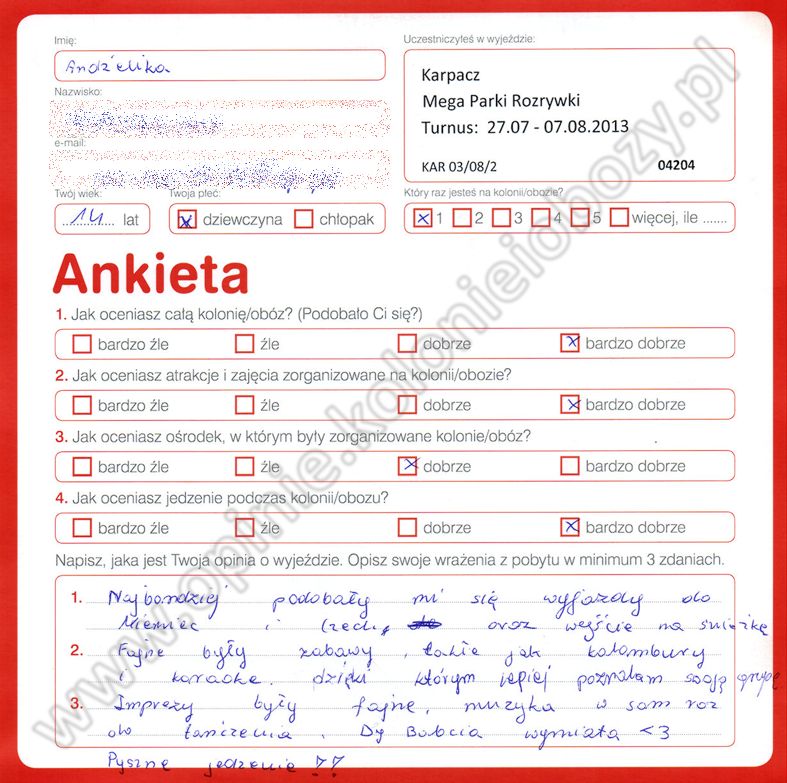 Imię:
Uczestniczyłeś w wyjeździe:
Andżelika
Karpacz
Mega Parki Rozrywki
Turnus: 27.07 - 07.08.2013
KAR 03/08/2 04204
Nazwisko:
e-mail:
Twój wiek: Twoja płeć: Który raz jesteś na kolonii/obozie?
14 lat x dziewczyna chłopak x 1 2 3 4 5 więcej, ile .......
Ankieta
1. Jak oceniasz całą kolonię/obóz? (Podobało Ci się?)
bardzo źle źle dobrze x bardzo dobrze
2. Jak oceniasz atrakcje i zajęcia zorganizowane na kolonii/obozie?
bardzo źle źle dobrze x bardzo dobrze
3. Jak oceniasz ośrodek, w którym były zorganizowane kolonie/obóz?
bardzo źle źle x dobrze bardzo dobrze
4. Jak oceniasz jedzenie podczas kolonii/obozu?
bardzo źle źle dobrze x bardzo dobrze
Napisz, jaka jest Twoja opinia o wyjeździe. Opisz swoje wrażenia z pobytu w minimum 3 zdaniach.
1. Najbardziej podobały mi się wyjazdy do
Niemiec i Czech, oraz wejście na śnieżkę
2. Fajne były zabawy, takie jak kalambury
i karaoke. dzięki którym lepiej poznałam swoją grupę
3. Imprezy były fajne, muzyka w sam raz
do tańczenia. Dj Babcia wymiata <3
Pyszne jedzenie !!
www.opinie.kolonieiobozy.pl